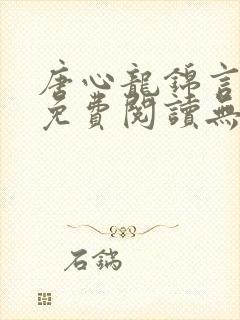 唐心龍錦言
免費閱讀無
石鍋